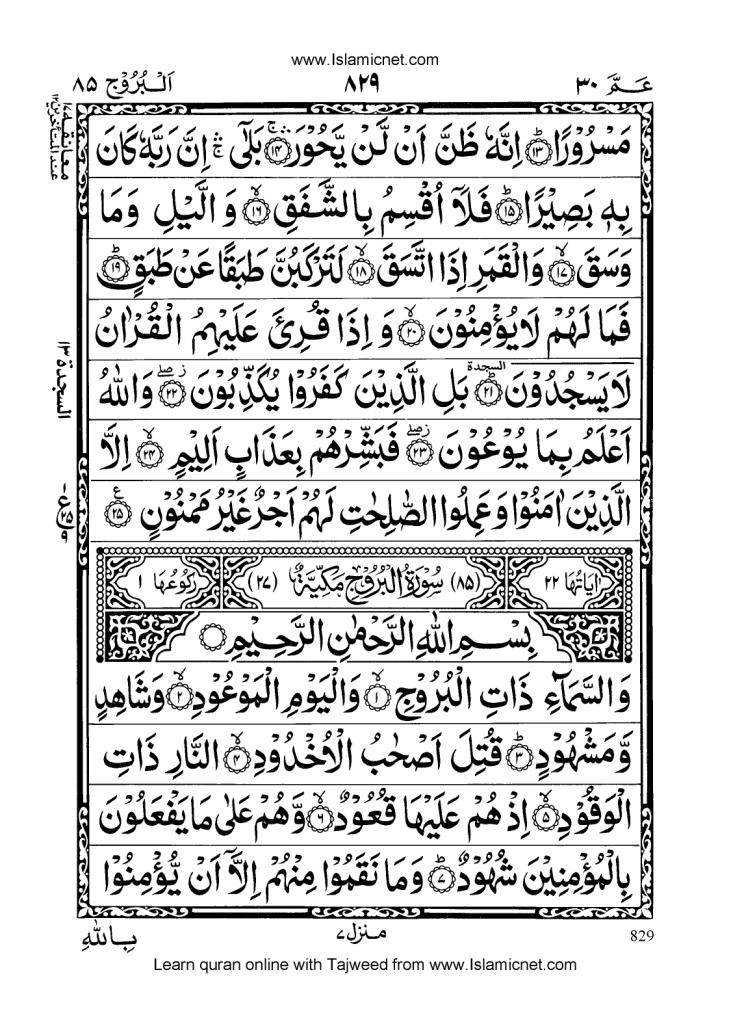 www.Islamicnet.com
عَمَّ ٣٠ ٨٢٩ اَلْبُرُوْج ٨٥
مَسْرُوْرًا ۝١٣ اِنَّهٗ ظَنَّ اَنْ لَّنْ يَّحُوْرَ ۝١٤ بَلٰٓى ۛۚ اِنَّ رَبَّهٗ كَانَ
بِهٖ بَصِيْرًا ۝١٥ فَلَآ اُقْسِمُ بِالشَّفَقِ ۝١٦ وَ الَّيْلِ وَمَا
وَسَقَ ۝١٧ وَالْقَمَرِ اِذَا اتَّسَقَ ۝١٨ لَتَرْكَبُنَّ طَبَقًا عَنْ طَبَقٍ ۝١٩
فَمَا لَهُمْ لَا يُؤْمِنُوْنَ ۝٢٠ وَ اِذَا قُرِئَ عَلَيْهِمُ الْقُرْاٰنُ
لَا يَسْجُدُوْنَ ۝٢١ السجدة بَلِ الَّذِيْنَ كَفَرُوْا يُكَذِّبُوْنَ ۝٢٢ وَاللّٰهُ
اَعْلَمُ بِمَا يُوْعُوْنَ ۝٢٣ فَبَشِّرْهُمْ بِعَذَابٍ اَلِيْمٍ ۝٢٤ اِلَّا
الَّذِيْنَ اٰمَنُوْا وَعَمِلُوا الصّٰلِحٰتِ لَهُمْ اَجْرٌ غَيْرُ مَمْنُوْنٍ ۝٢٥
اٰيَاتُهَا ٢٢ (٨٥) سُوْرَةُ الْبُرُوْجِ مَكِّيَّةٌ (٢٧) رُكُوْعُهَا ١
بِسْمِ اللّٰهِ الرَّحْمٰنِ الرَّحِيْمِ
وَالسَّمَآءِ ذَاتِ الْبُرُوْجِ ۝١ وَالْيَوْمِ الْمَوْعُوْدِ ۝٢ وَشَاهِدٍ
وَّمَشْهُوْدٍ ۝٣ قُتِلَ اَصْحٰبُ الْاُخْدُوْدِ ۝٤ النَّارِ ذَاتِ
الْوَقُوْدِ ۝٥ اِذْ هُمْ عَلَيْهَا قُعُوْدٌ ۝٦ وَّهُمْ عَلٰى مَا يَفْعَلُوْنَ
بِالْمُؤْمِنِيْنَ شُهُوْدٌ ۝٧ وَمَا نَقَمُوْا مِنْهُمْ اِلَّآ اَنْ يُّؤْمِنُوْا
829 منزل ٧ بِاللّٰهِ
السجدة ١٣
Learn quran online with Tajweed from www.Islamicnet.com